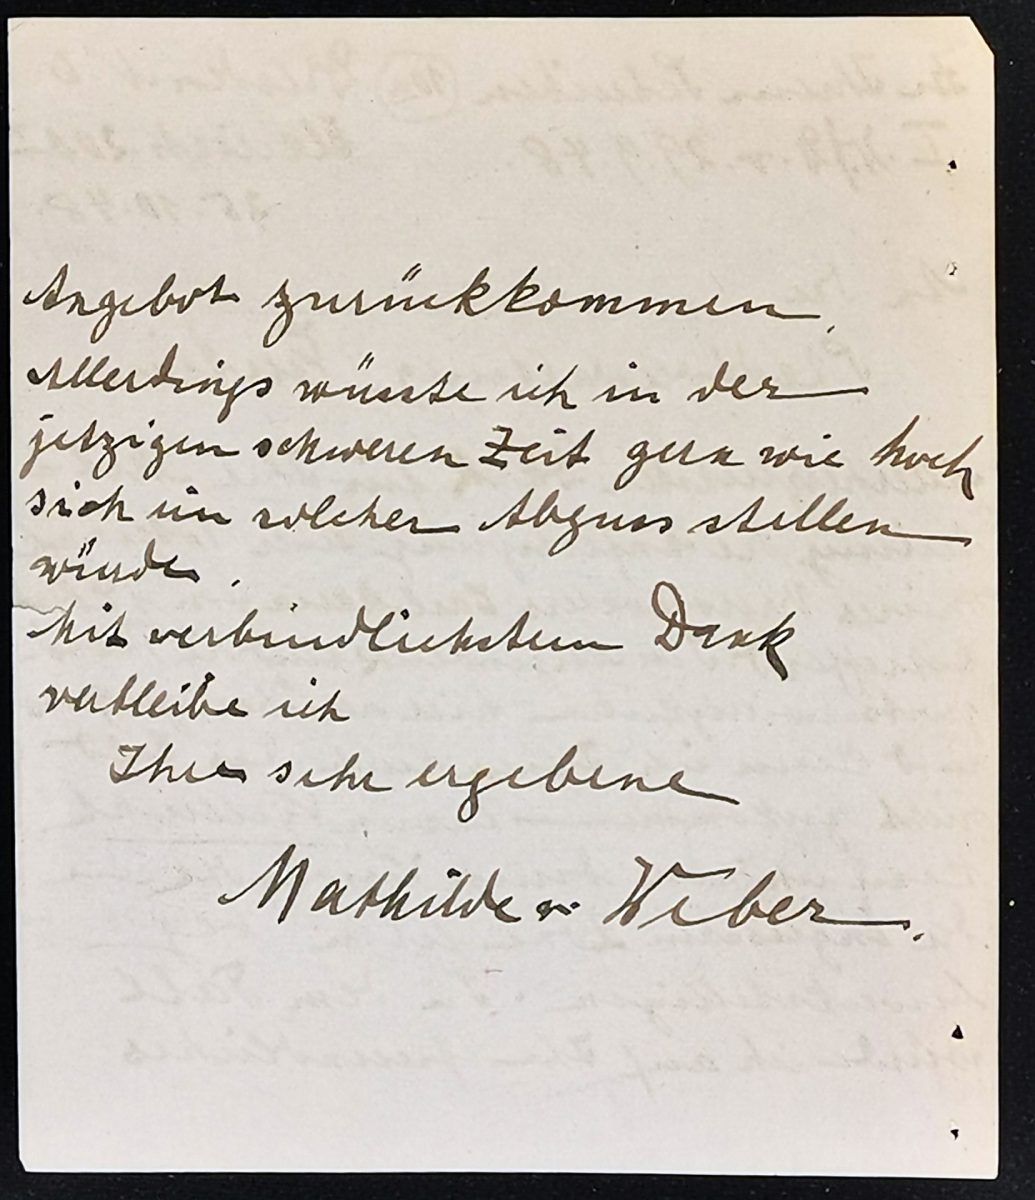 Angebot zurückkommen.
Allerdings wüsste ich in der
jetzigen schweren Zeit gern wie hoch
sich ein solcher Abguss stellen
würde.
Mit verbindlichstem Dank
verbleibe ich
Ihre sehr ergebene
Mathilde v. Weber.